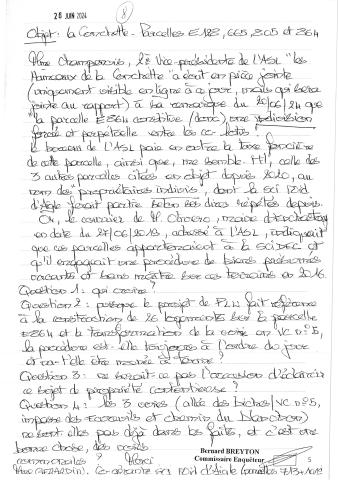 26 JUIN 2024
8
Objet : la Conchette - Parcelles E 665, 205 et 264
Mme Champenois, 1e Vice-présidente de l'ASL "les
Hameaux de la Conchette" a écrit en pièce jointe
(uniquement visible en ligne à ce jour, mais qui sera
jointe au rapport) à sa remarque du 20/06/24 que
"la parcelle E264 constitue (donc) une indivision
forcée et perpétuelle entre les lots".
Le bureau de l'ASL paie en outre la taxe foncière
de cette parcelle, ainsi que, me semble-t-il, celle des
3 autres parcelles citées en objet depuis 2020, au
nom des "propriétaires indivis", dont la sci
feraient partie selon ses dires répétés depuis.
Or, le courrier de M. maire
en date du 27/06/2013, adressé à l'ASL, indiquait
que ces parcelles appartenaient à la sci et
qu'il engageait une procédure de biens présumés
vacants et sans maître sur ces terrains en 2016.
Question 1 : qui croire ?
Question 2 : puisque le projet de PLU fait référence
à la construction de 26 logements sur la parcelle
E264 et la transformation de la voie en VC n°5,
la procédure est-elle toujours à l'ordre du jour
et va-t-elle être menée à terme ?
Question 3 : ne serait-ce pas l'occasion d'éclaircir
ce sujet de propriété contentieuse ?
Question 4 : les 3 voies (allée des biches/VC n°5,
impasse des écureuils et chemin du
ne sont elles pas déjà dans les faits, et c'est une
bonne chose, des voies
communales ? Merci
Bernard BREYTON
Commissaire Enquêteur
5